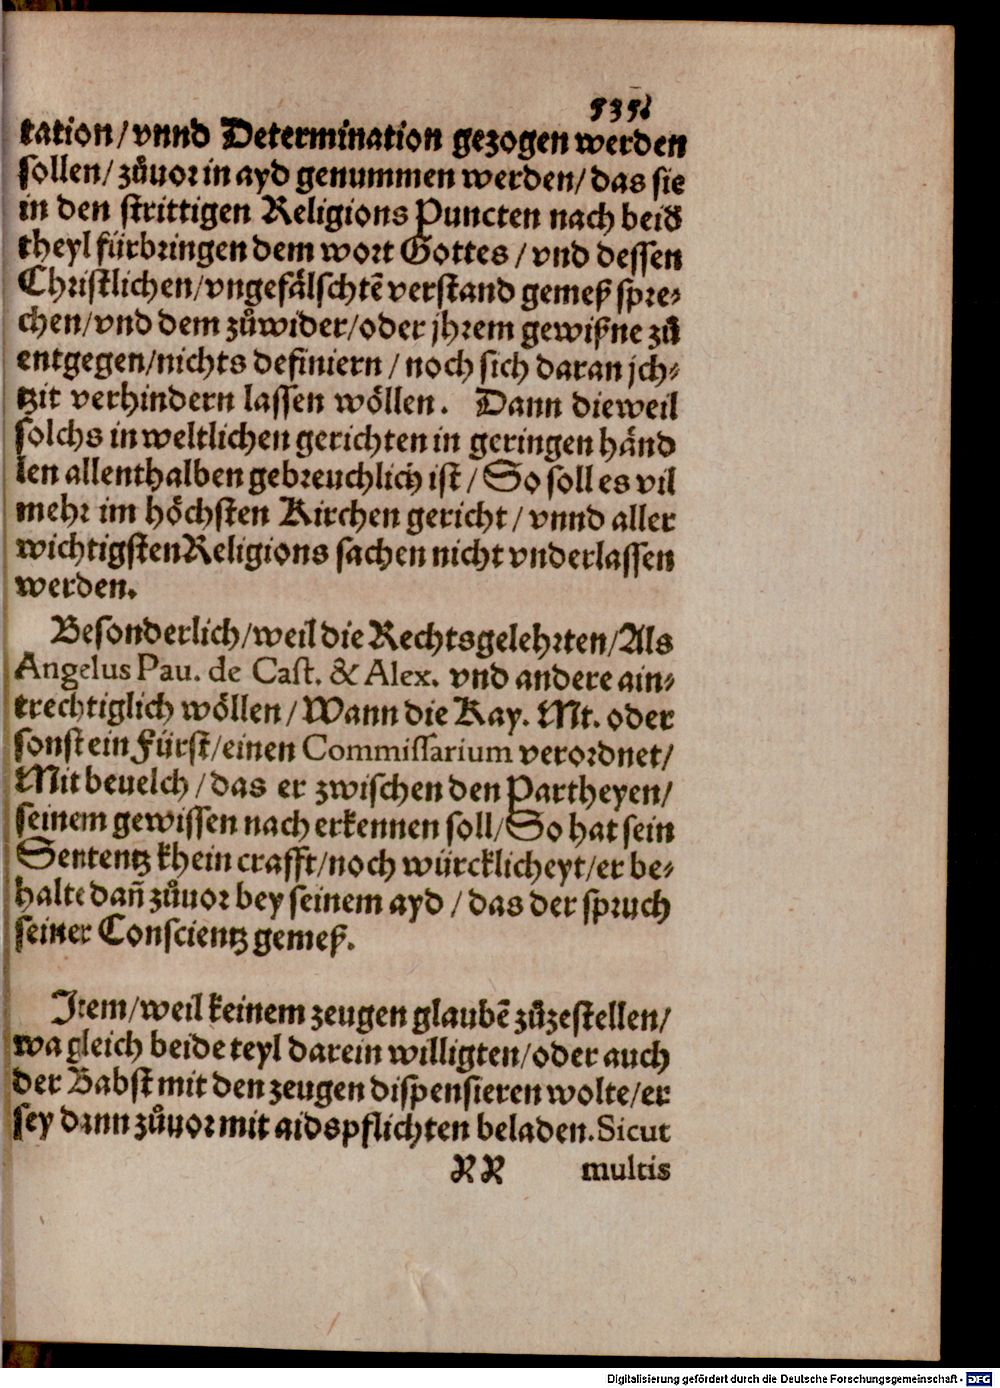 535
tation/vnnd Determination gezogen werden
sollen/ zůuor in ayd genummen werden/ das sie
in den strittigen Religions Puncten nach beid
theyl fürbringen dem wort Gottes / vnd dessen
Christlichen/vngefälschtē verstand gemeß spre⸗
chen/vnd dem zůwider/oder jhrem gewißne zů
entgegen/nichts definiern / noch sich daran jch⸗
tzit verhindern lassen wöllen. Dann dieweil
solchs in weltlichen gerichten in geringen händ
len allenthalben gebreuchlich ist / So soll es vil
mehr im höchsten Kirchen gericht / vnnd aller
wichtigsten Religions sachen nicht vnderlassen
werden.
Besonderlich/weil die Rechtsgelehrten/Als
Angelus Pau. de Cast. & Alex. vnd andere ain⸗
trechtiglich wöllen / Wann die Kay. Mt. oder
sonst ein Fürst/einen Commissarium verordnet/
Mit beuelch / das er zwischen den Partheyen/
seinem gewissen nach erkennen soll/ So hat sein
Sententz khein crafft/noch würcklicheyt/er be⸗
halte dañ zůuor bey seinem ayd / das der spruch
seiner Conscientz gemeß.
Item/weil keinem zeugen glaubē zůzestellen/
wa gleich beide teyl darein willigten/oder auch
der Babst mit den zeugen dispensieren wolte/er
sey dann zůuor mit aidspflichten beladen. Sicut
RR multis
Digitalisierung gefördert durch die Deutsche Forschungsgemeinschaft - DFG